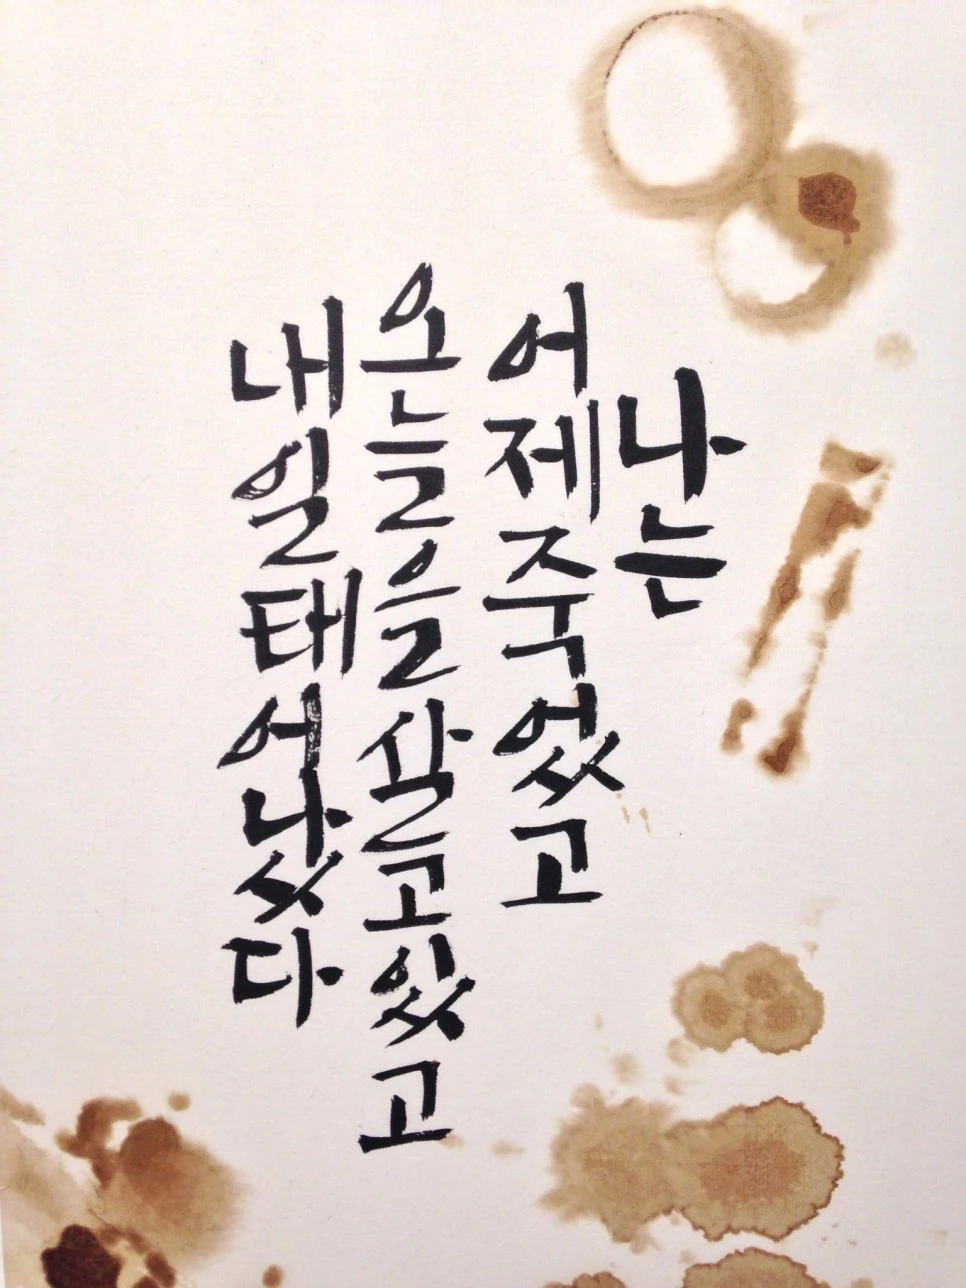 나는
어제죽었고
오늘을살고있고
내일태어났다